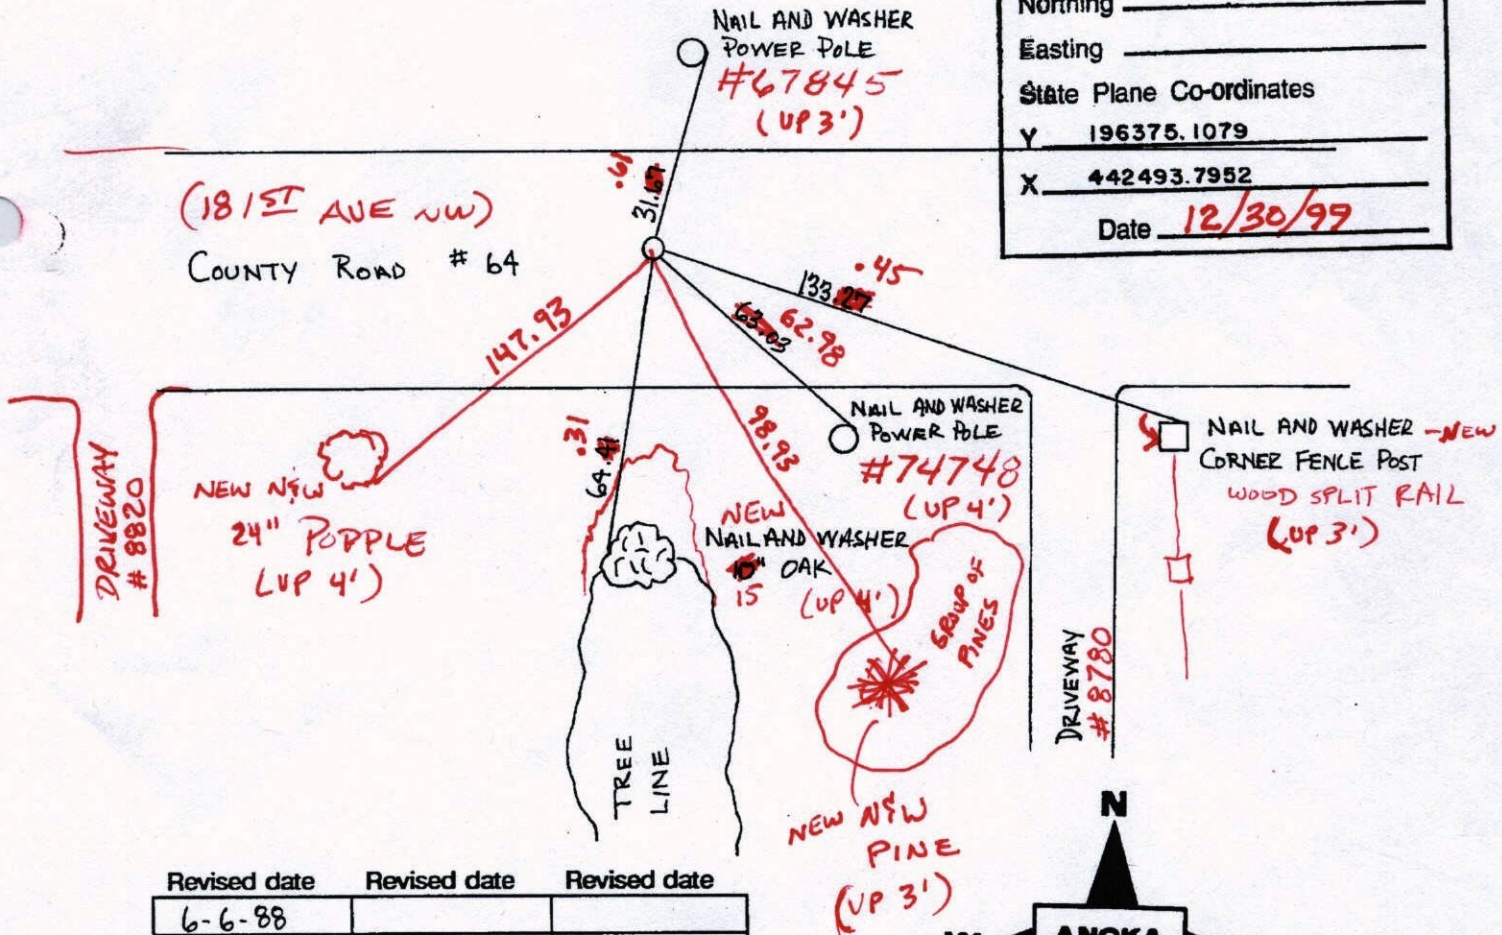 NAIL AND WASHER
POWER POLE
#67845
(UP 3')
Northing
Easting
State Plane Co-ordinates
Y 196375.1079
X 442493.7952
Date 12/30/99
(181ST AVE NW)
COUNTY ROAD # 64
.61
31.67
147.93
133.27
.45
63.03
62.98
98.93
.31
64.41
DRIVEWAY
# 8820
NEW N&W
24" POPPLE
(UP 4')
NAIL AND WASHER
POWER POLE
#74748
(UP 4')
NAIL AND WASHER - NEW
CORNER FENCE POST
WOOD SPLIT RAIL
(UP 3')
NEW
NAIL AND WASHER
10" OAK
15 (UP 4')
GROUP OF
PINES
DRIVEWAY
# 8780
TREE
LINE
NEW N&W
PINE
(UP 3')
N
Revised date Revised date Revised date
6-6-88
W
ANOKA